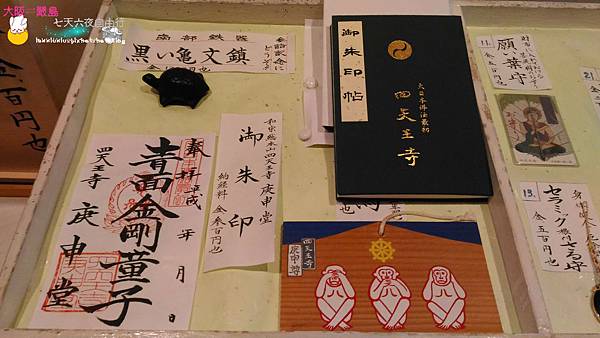 大阪⇨嚴島
七天六夜自由行
南部鉄器
黒い亀文鎮
参詣記念に
金
百円也
御朱印帖
大日本佛法最初
四天王寺
11.
願い葉守
金五百円也
奉拝
平成 年 月 日
青面金剛童子
四天王寺
庚申堂
和宗総本山四天王寺庚申堂
御朱印
納経料 金参百円也
四天王寺
庚申尊
13.
セラミック根付さる守
金五百円也
21